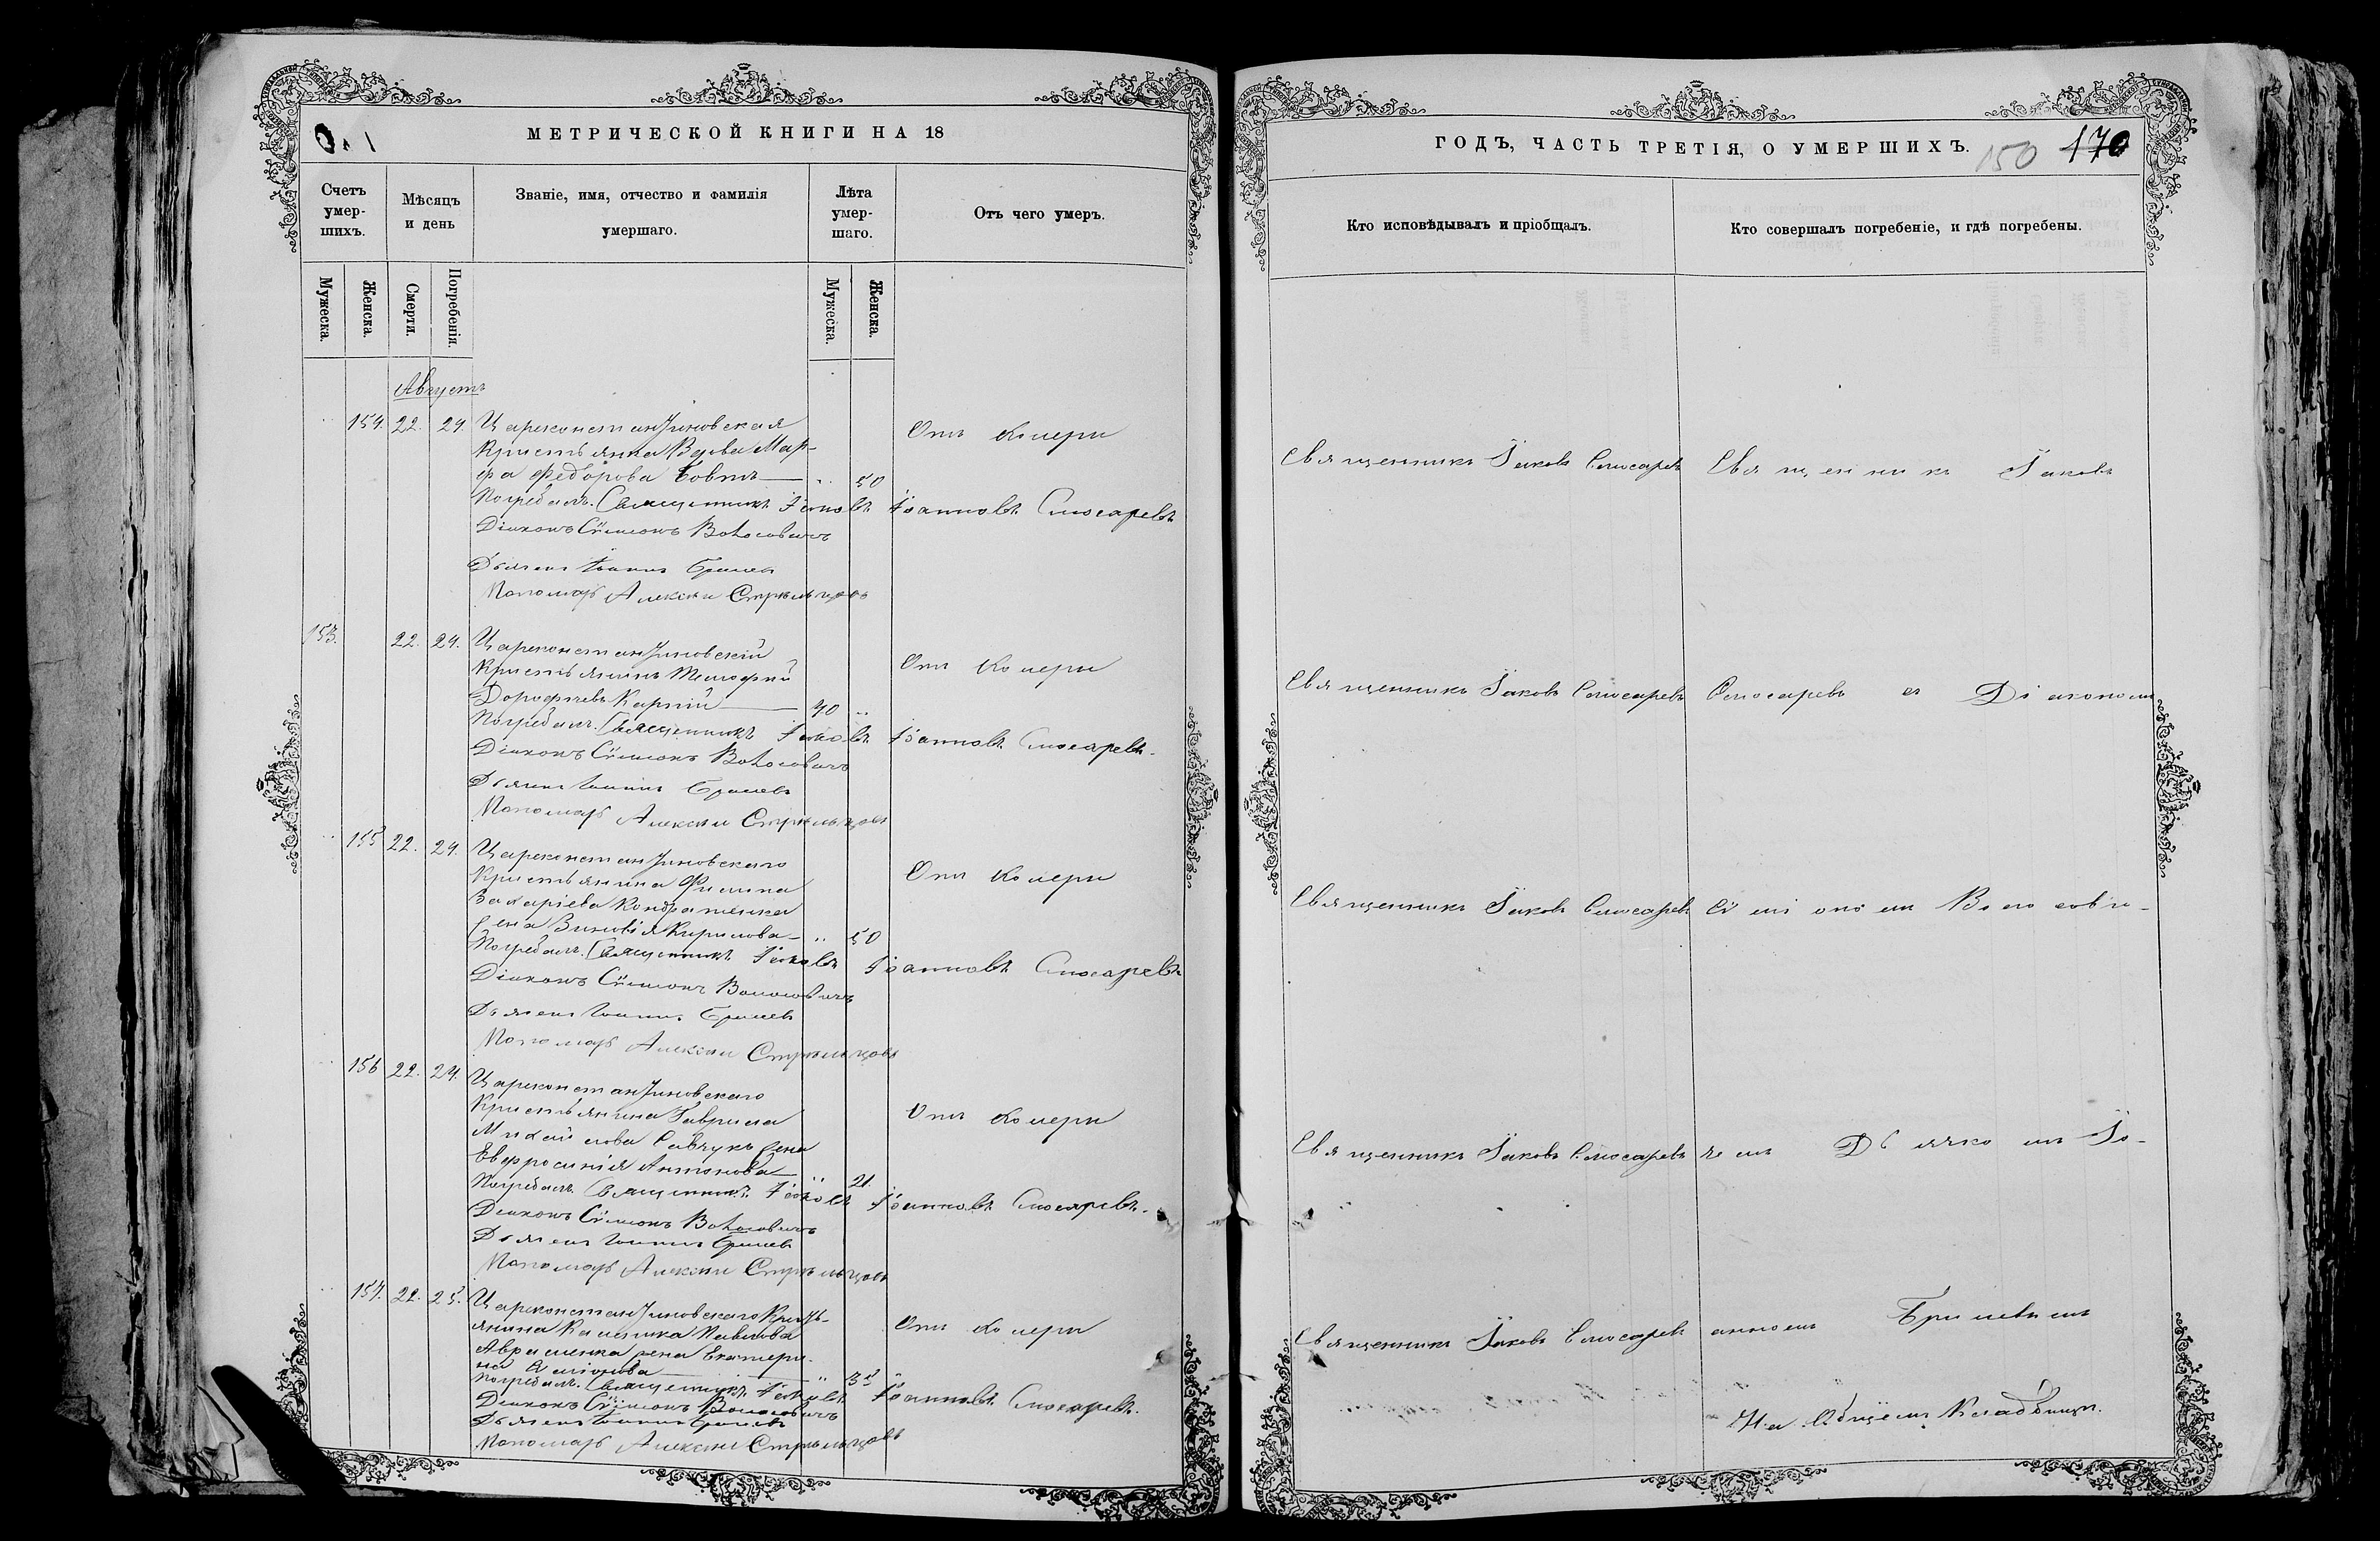 МЕТРИЧЕСКОЙ КНИГИ НА 18
Счетъ умер-шихъ.
Мѣсяцъ и день
Званіе, имя, отчество и фамилія умершаго.
Лѣта умер-шаго.
Отъ чего умеръ.
Мужеска.
Женска.
Смерти.
Погребенія.
Мужеска.
Женска.
Августъ
154. 22. 24. Цареконстантиновская
Крестьянка Вдова Мар-
фа Федорова Бовтъ 50
Отъ Холеры
Погребалъ: Священникъ Іаковъ Іоанновъ Слюсаревъ
Діаконъ Сѵмеонъ Волосовичъ
Дьячекъ Іоаннъ
Пономарь Алексѣй Стрѣльцовъ
153. 22. 24. Цареконстантиновскій
Крестьянинъ Тимофей
Дорофеевъ Карпій 40
Отъ Холеры
Погребалъ: Священникъ Іаковъ Іоанновъ Слюсаревъ.
Діаконъ Сѵмеонъ Волосовичъ
Дьячекъ Іоаннъ
Пономарь Алексѣй Стрѣльцовъ
155 22. 24. Цареконстантиновскаго
Крестьянина Филипа
Захаріева Кондратенка
жена Зиновія Кирилова 50
Отъ Холеры
Погребалъ: Священникъ Іаковъ Іоанновъ Слюсаревъ
Діаконъ Сѵмеонъ Волосовичъ
Дьячекъ Іоаннъ
Пономарь Алексѣй Стрѣльцовъ
156 22. 24. Цареконстантиновскаго
Крестьянина Гаврила
Михайлова Савчукъ жена
Евфросинія Антонова 21.
Отъ Холеры
Погребалъ: Священникъ Іаковъ Іоанновъ Слюсаревъ.
Діаконъ Сѵмеонъ Волосовичъ
Дьячекъ Іоаннъ
Пономарь Алексѣй Стрѣльцовъ
157. 22. 25. Цареконстантиновскаго Кресть-
янина Калиника Павлова
Авраменка жена Екатери-
на 35
Отъ Холеры
Погребалъ: Священникъ Іаковъ Іоанновъ Слюсаревъ.
Діаконъ Сѵмеонъ Волосовичъ
Дьячекъ Іоаннъ
Пономарь Алексѣй Стрѣльцовъ
ГОДЪ, ЧАСТЬ ТРЕТІЯ, О УМЕРШИХЪ.
150 170
Кто исповѣдывалъ и пріобщалъ.
Кто совершалъ погребеніе, и гдѣ погребены.
Священникъ Іаковъ Слюсаревъ Священникъ Іаковъ
Священникъ Іаковъ Слюсаревъ Слюсаревъ съ Діакономъ
Священникъ Іаковъ Слюсаревъ Сѵмеономъ Волосови-
Священникъ Іаковъ Слюсаревъ чемъ Дьячкомъ Іо-
Священникъ Іаковъ Слюсаревъ анномъ
На Общемъ Кладбищѣ.